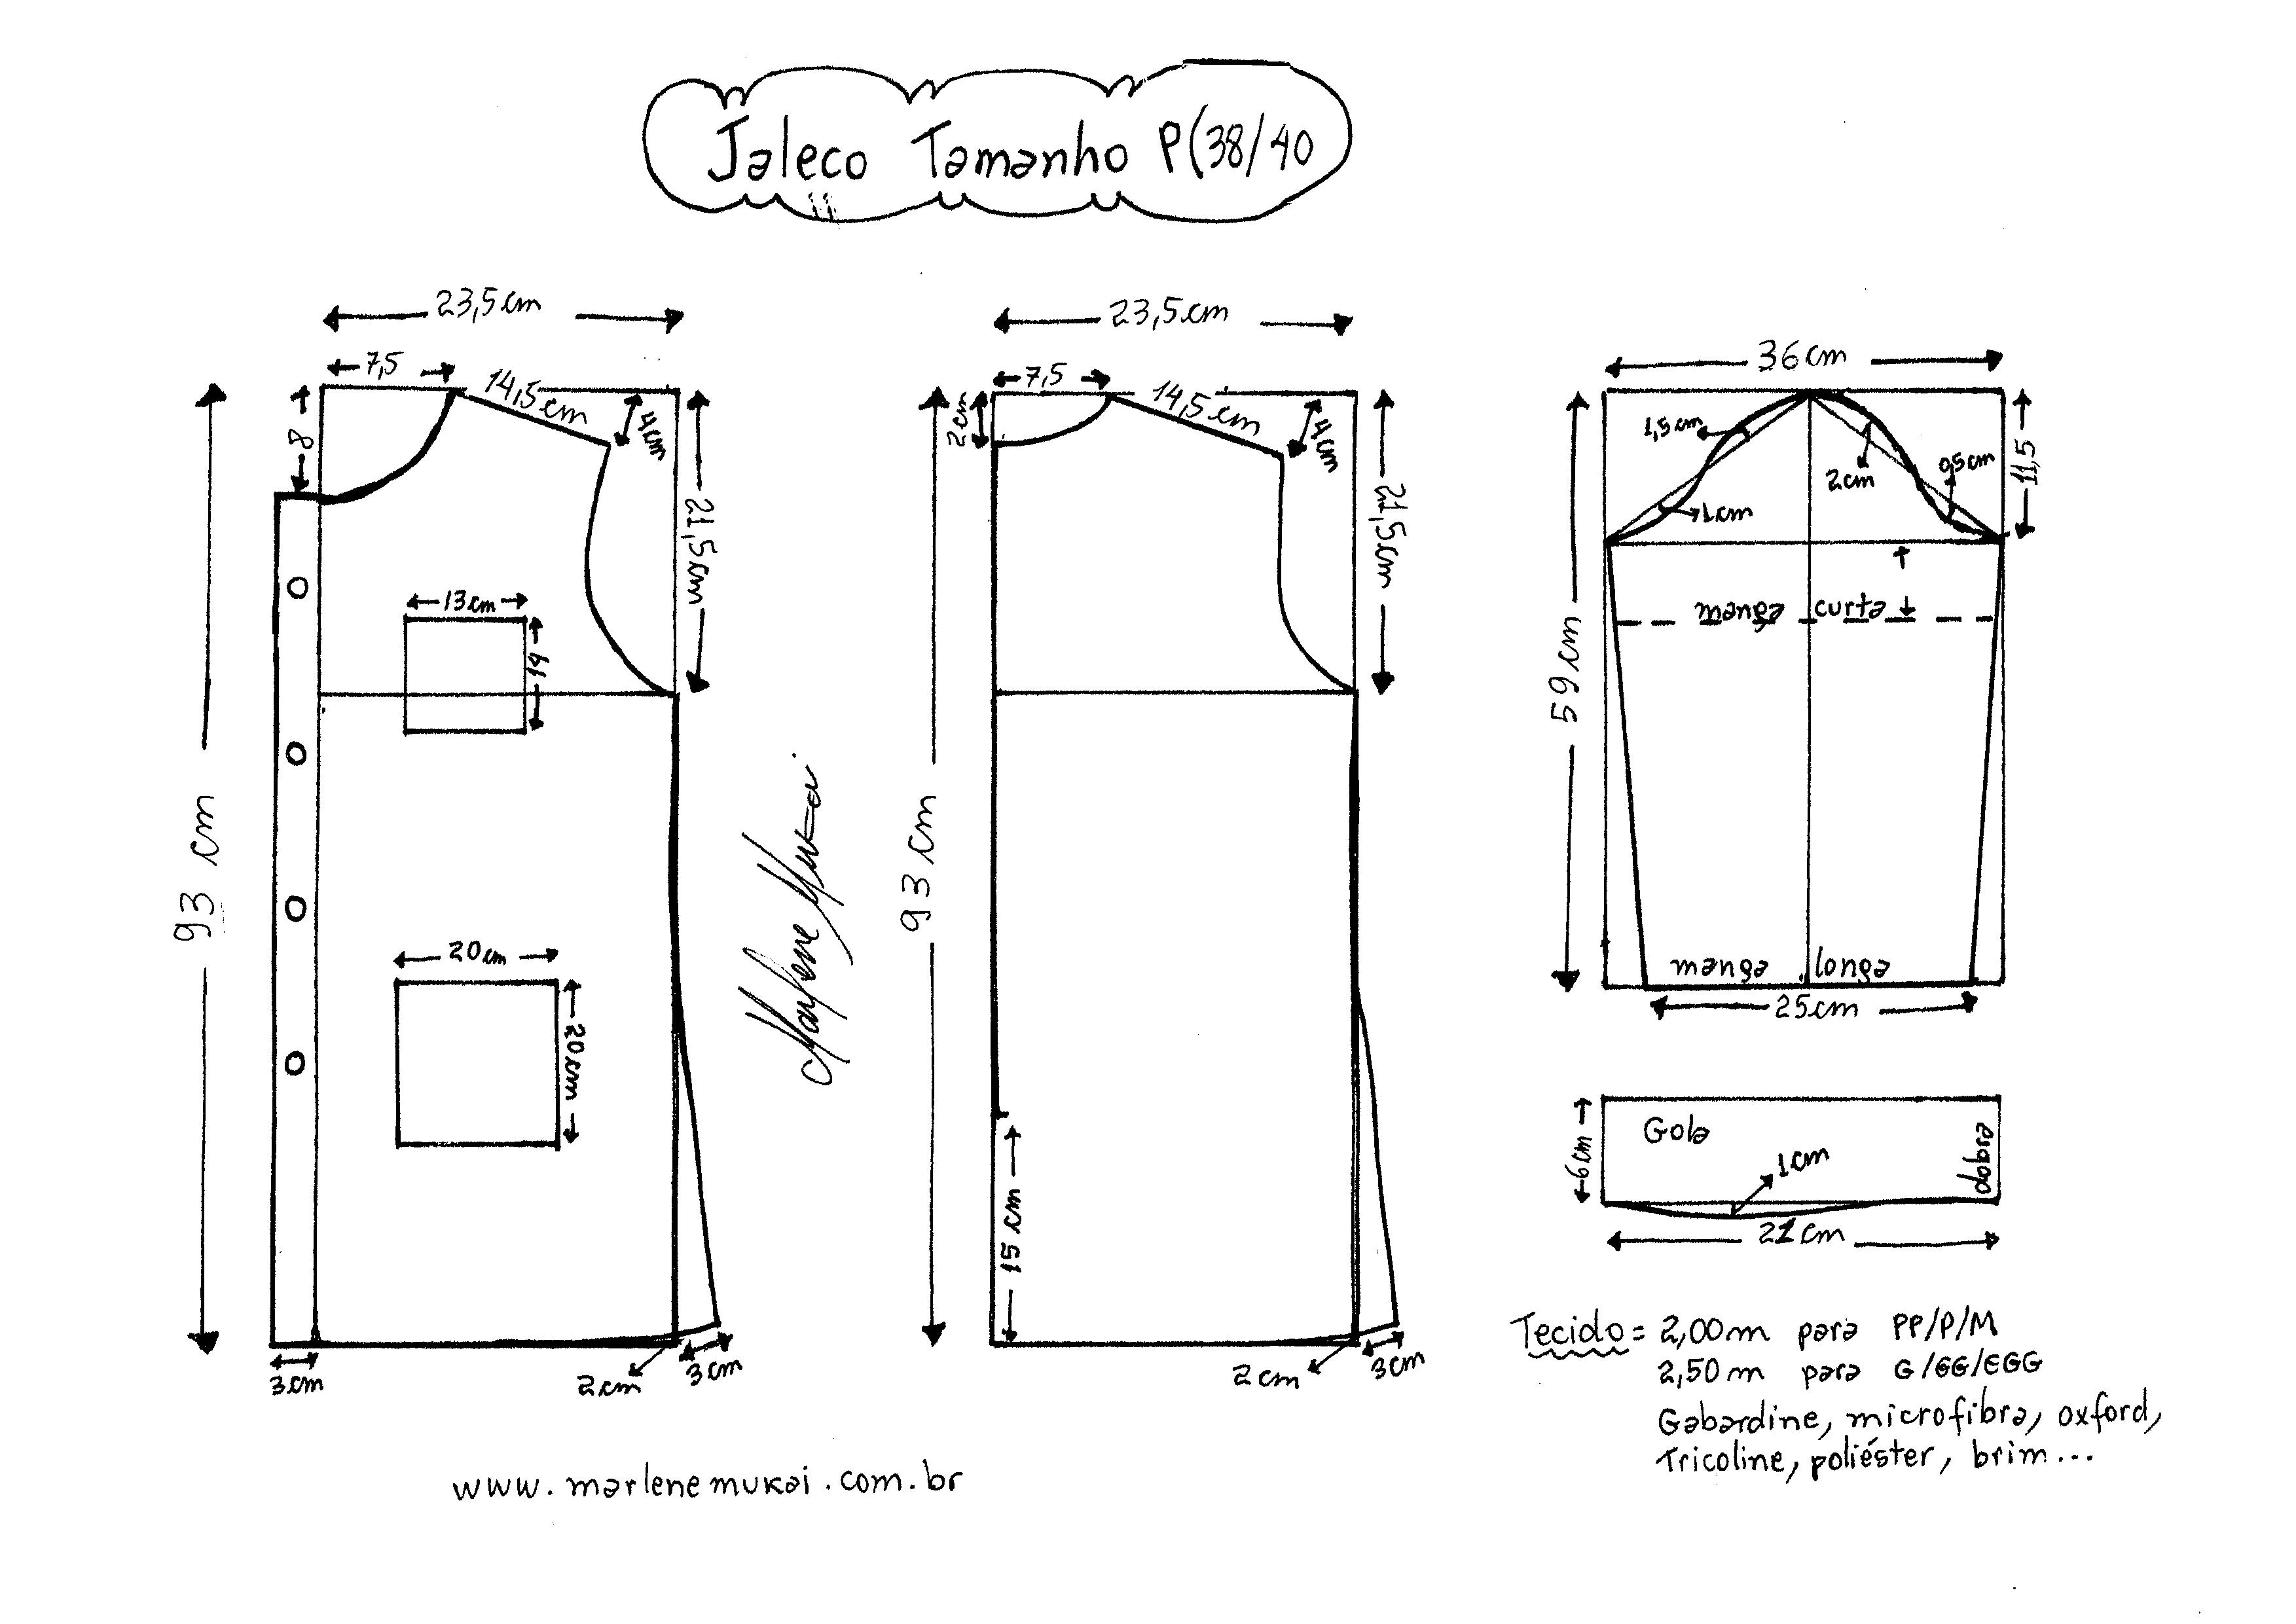 Jaleco Tamanho P(38/40
23,5cm
7,5
14,5cm
4cm
8
21,5cm
93 cm
13cm
14
20cm
20cm
3cm
2cm
3cm
Marlene Mukai
23,5cm
7,5
14,5cm
4cm
2cm
21,5cm
93 cm
15cm
2cm
3cm
36cm
1,5cm
2cm
0,5cm
1cm
11,5
manga curta
59cm
manga longa
25cm
Gola
dobra
6cm
1cm
21cm
Tecido = 2,00m para PP/P/M
2,50m para G/GG/EGG
Gabardine, microfibra, oxford,
Tricoline, poliéster, brim...
www.marlenemukai.com.br